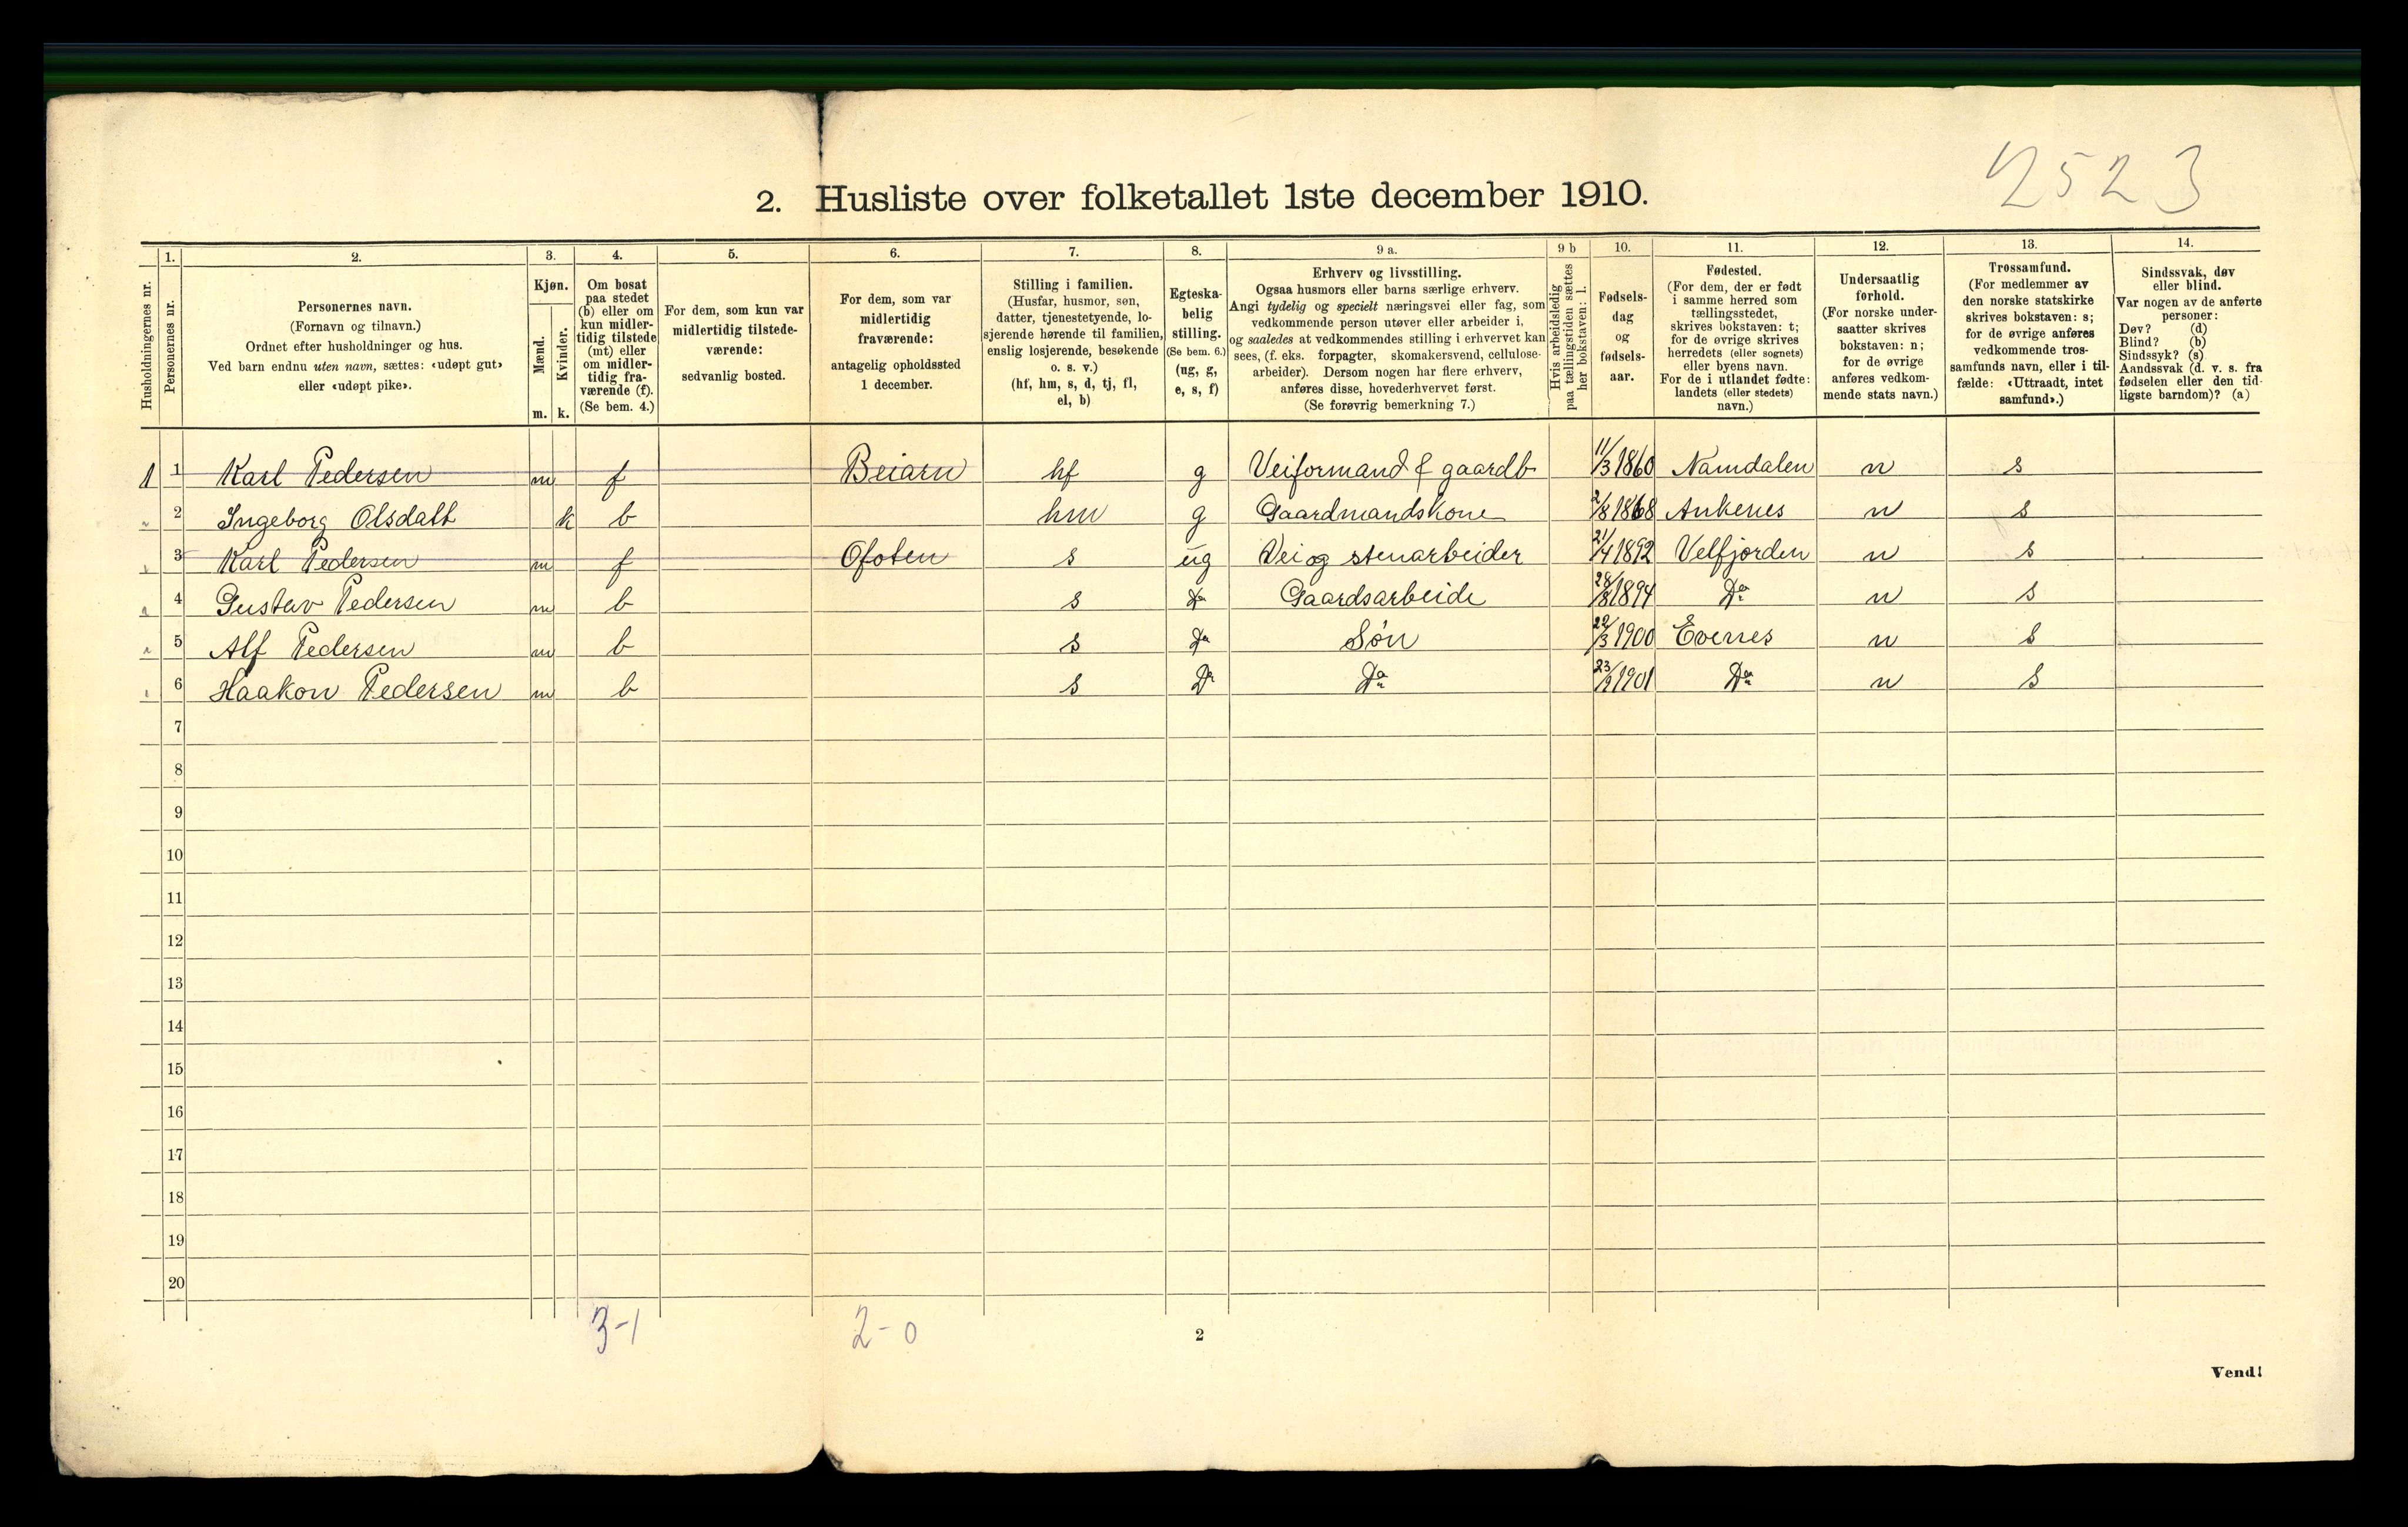 2523
2. Husliste over folketallet 1ste december 1910.
Husholdningernes nr.
1. Personernes nr.
2. Personernes navn.
(Fornavn og tilnavn.)
Ordnet efter husholdninger og hus.
Ved barn endnu uten navn, sættes: «udøpt gut»
eller «udøpt pike».
3. Kjøn.
Mænd. m.
Kvinder. k.
4. Om bosat
paa stedet
(b) eller om
kun midler-
tidig tilstede
(mt) eller
om midler-
tidig fra-
værende (f).
(Se bem. 4.)
5. For dem, som kun var
midlertidig tilstede-
værende:
sedvanlig bosted.
6. For dem, som var
midlertidig
fraværende:
antagelig opholdssted
1 december.
7. Stilling i familien.
(Husfar, husmor, søn,
datter, tjenestetyende, lo-
sjerende hørende til familien,
enslig losjerende, besøkende
o. s. v.)
(hf, hm, s, d, tj, fl,
el, b)
8. Egteska-
belig
stilling.
(Se bem. 6.)
(ug, g,
e, s, f)
9 a. Erhverv og livsstilling.
Ogsaa husmors eller barns særlige erhverv.
Angi tydelig og specielt næringsvei eller fag, som
vedkommende person utøver eller arbeider i,
og saaledes at vedkommendes stilling i erhvervet kan
sees, (f. eks. forpagter, skomakersvend, cellulose-
arbeider). Dersom nogen har flere erhverv,
anføres disse, hovederhvervet først.
(Se forøvrig bemerkning 7.)
9 b Hvis arbeidsledig
paa tællingstiden sættes
her bokstaven: l.
10. Fødsels-
dag
og
fødsels-
aar.
11. Fødested.
(For dem, der er født
i samme herred som
tællingsstedet,
skrives bokstaven: t;
for de øvrige skrives
herredets (eller sognets)
eller byens navn.
For de i utlandet fødte:
landets (eller stedets)
navn.)
12. Undersaatlig
forhold.
(For norske under-
saatter skrives
bokstaven: n;
for de øvrige
anføres vedkom-
mende stats navn.)
13. Trossamfund.
(For medlemmer av
den norske statskirke
skrives bokstaven: s;
for de øvrige anføres
vedkommende tros-
samfunds navn, eller i til-
fælde: «Uttraadt, intet
samfund».)
14. Sindssvak, døv
eller blind.
Var nogen av de anførte
personer:
Døv? (d)
Blind? (b)
Sindssyk? (s)
Aandssvak (d. v. s. fra
fødselen eller den tid-
ligste barndom)? (a)
1 1 Karl Pedersen m f Beiarn hf g Veiformand & gaardb 11/3 1860 Namdalen n s
" 2 Ingeborg Olsdatt k b hm g Gaardmandskone 2/8 1868 Ankenes n s
" 3 Karl Pedersen m f Ofoten s ug Vei og stenarbeider 21/4 1892 Velfjorden n s
" 4 Gustav Pedersen m b s Do Gaardsarbeide 28/8 1894 Do n s
" 5 Alf Pedersen m b s Do Søn 22/3 1900 Evenes n s
" 6 Haakon Pedersen m b s Do Do 23/9 1901 Do n s
7
8
9
10
11
12
13
14
15
16
17
18
19
20
3-1 2-0
2
Vend!